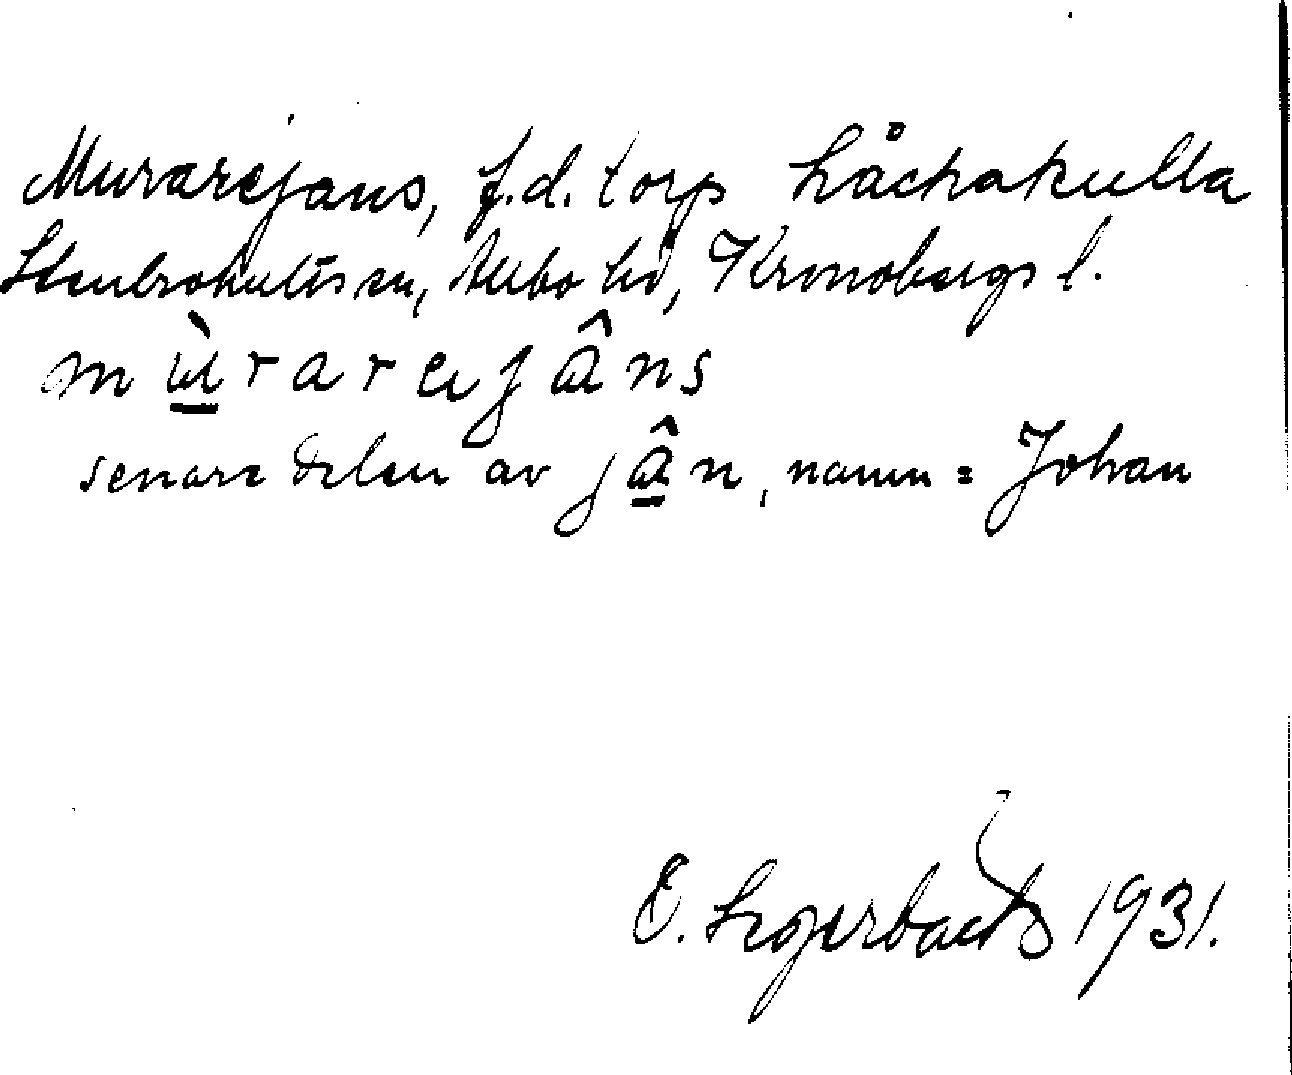 Murarejans, f.d. torp Låchakulla
Stenbrohults sn, Allbo hd, Kronobergs l.
mùrarejâns
senare delen av jân, namn = Johan
E. Segerbäck 1931.